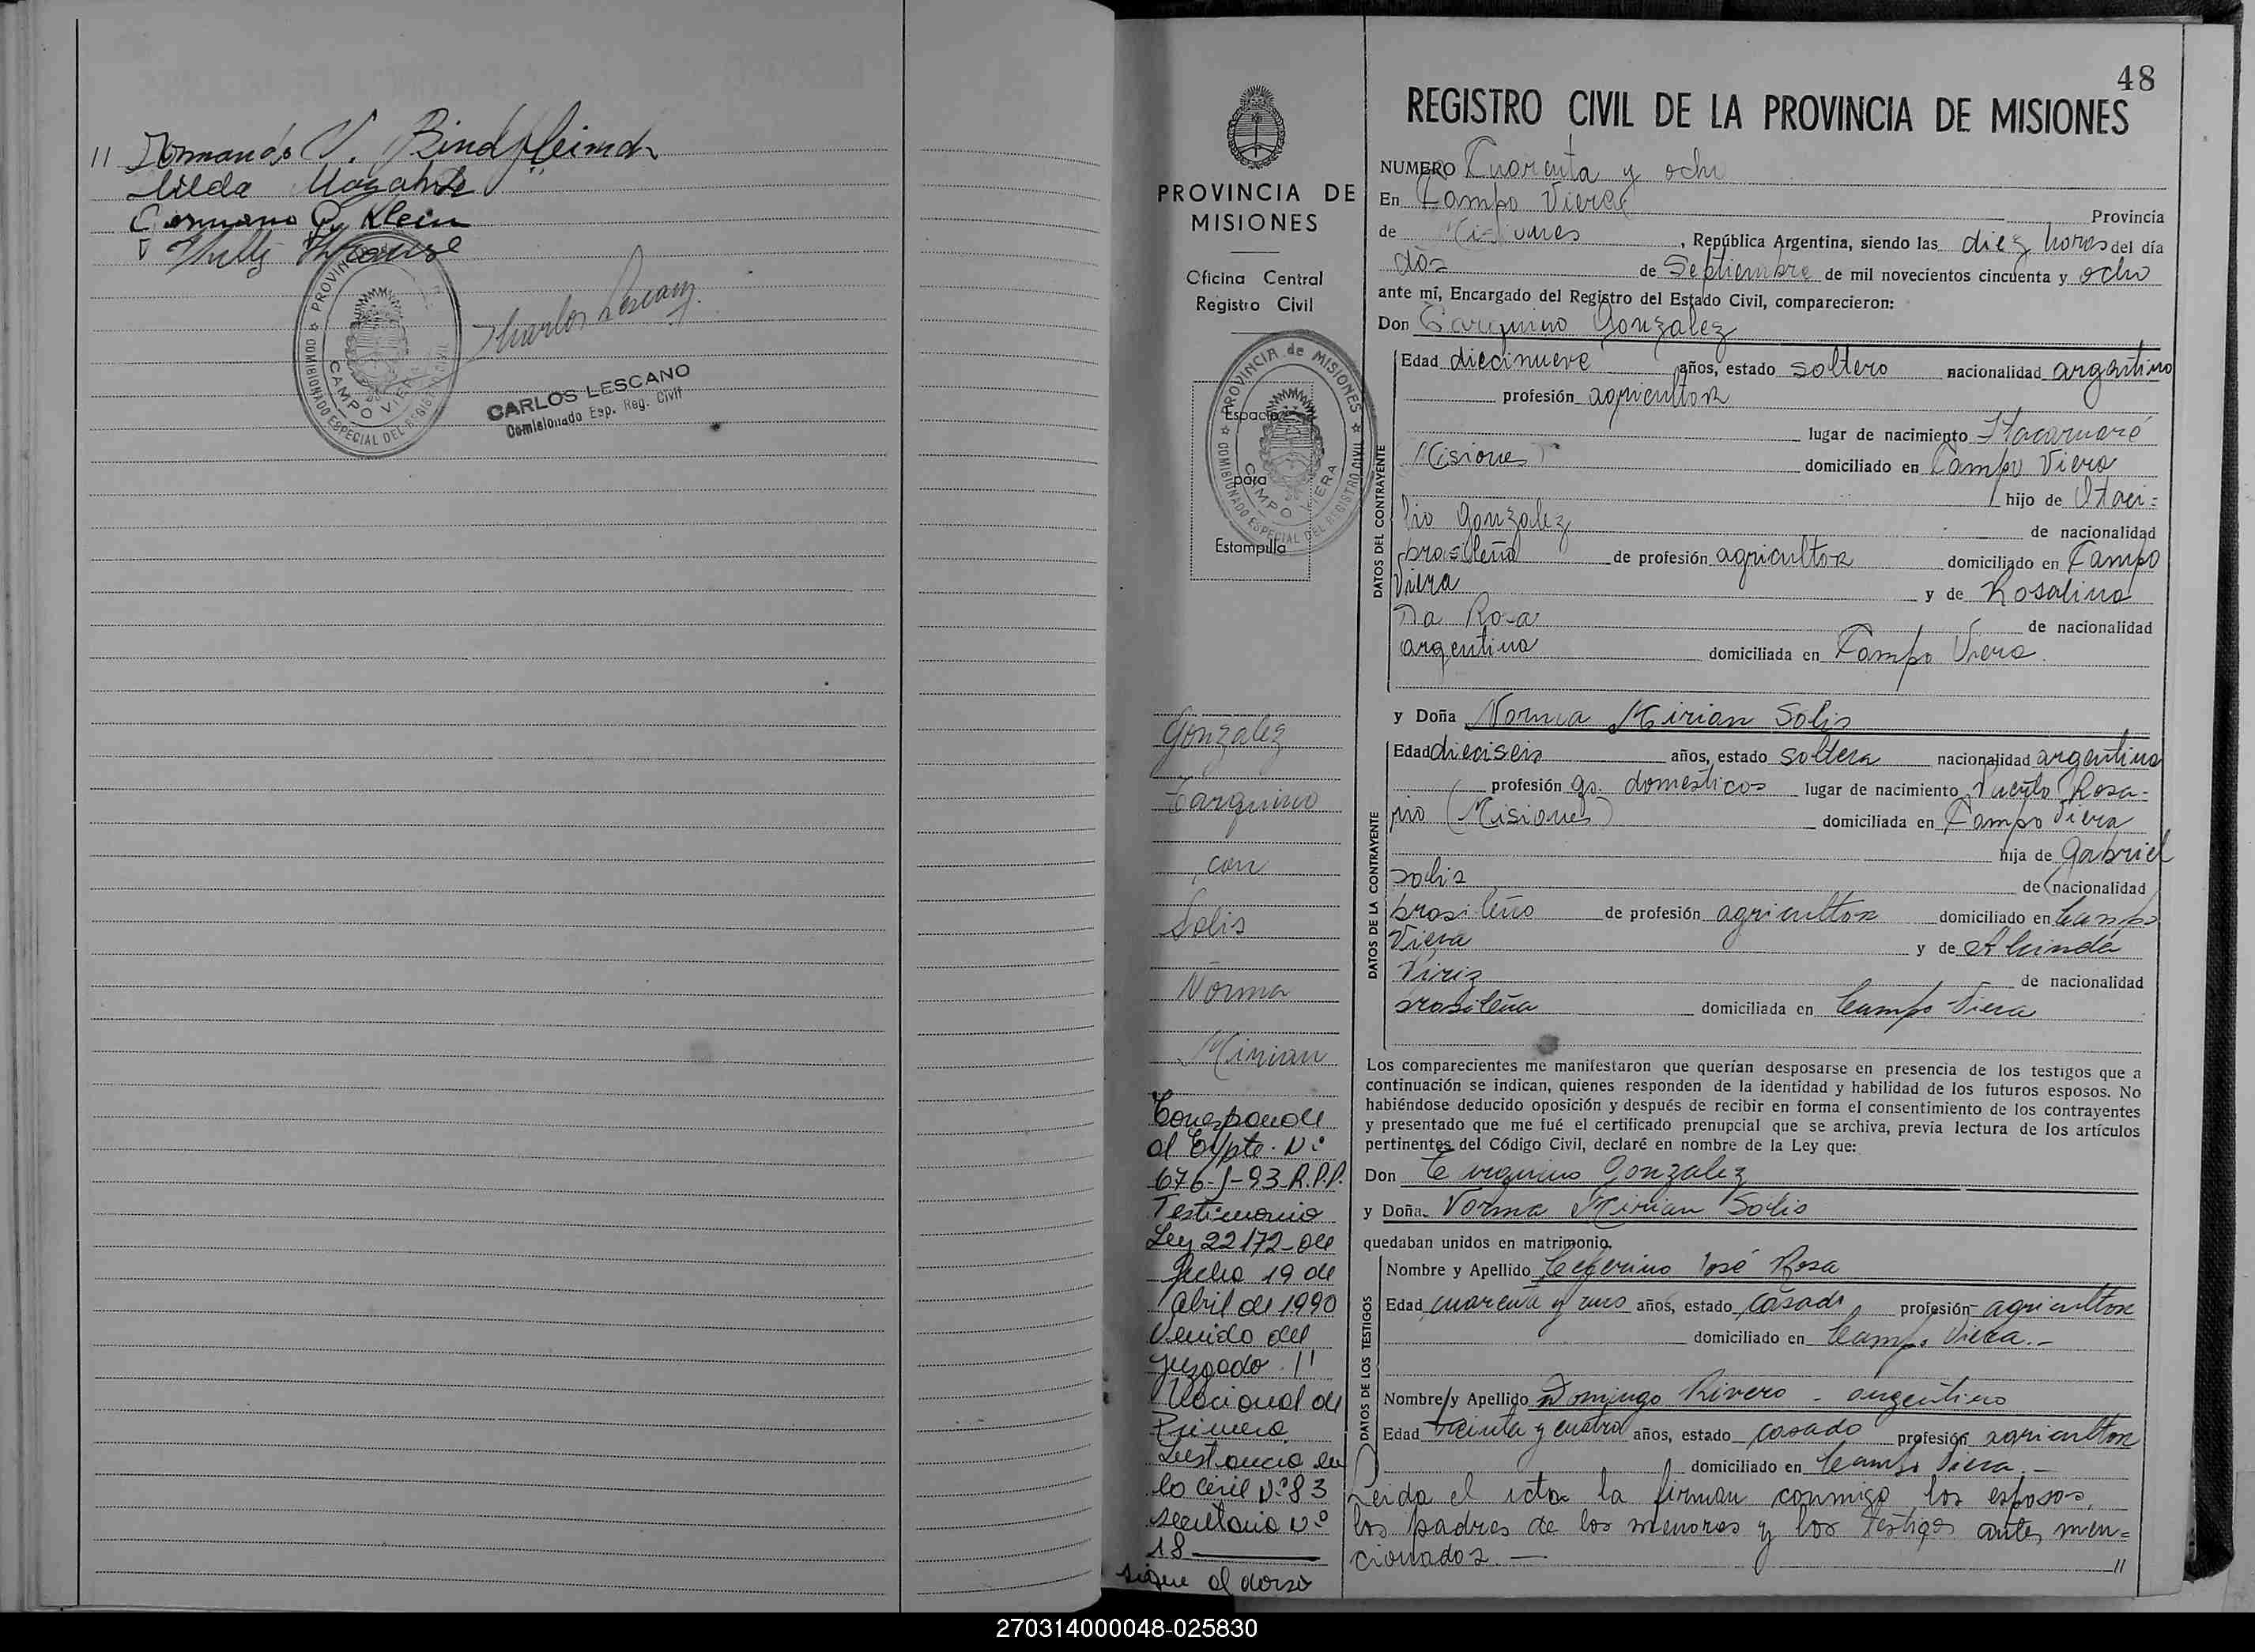 48
// Armando V. Bindfleimch
Nilda
Germano P. Klein
Willy Krause
PROVINCIA
COMISIONADO ESPECIAL DEL REGISTRO CIVIL
CAMPO VIERA
Charlos Lescano
CARLOS LESCANO
Comisionado Esp. Reg. Civil
PROVINCIA DE
MISIONES
Oficina Central
Registro Civil
PROVINCIA de MISIONES
COMISIONADO ESPECIAL DEL REGISTRO CIVIL
CAMPO VIERA
Espacio
para
Estampilla
Gonzalez
Tarquino
con
Solis
Norma
Mirian
Corresponde
al Expte. Nº
676-J-93-R.P.P.
Testimonio
Ley 22172-de
fecha 19 de
Abril de 1990
Venido del
Juzgado
Nacional de
Primera
Instancia en
lo Civil Nº 83
secretaria Nº
18
sigue al dorso
REGISTRO CIVIL DE LA PROVINCIA DE MISIONES
NUMERO Cuarenta y ocho
En Campo Viera Provincia
de Misiones, República Argentina, siendo las diez horas del día
dos de Septiembre de mil novecientos cincuenta y ocho
ante mí, Encargado del Registro del Estado Civil, comparecieron:
Don Tarquino Gonzalez
DATOS DEL CONTRAYENTE
Edad diecinueve años, estado soltero nacionalidad argentino
profesión agricultor
lugar de nacimiento Itacaruaré
Misiones domiciliado en Campo Viera
hijo de Otaci=
lio Gonzalez de nacionalidad
brasileña de profesión agricultor domiciliado en Campo
Viera y de Rosalina
Da Rosa de nacionalidad
argentina domiciliada en Campo Viera.
y Doña Norma Mirian Solis
DATOS DE LA CONTRAYENTE
Edad dieciseis años, estado soltera nacionalidad argentina
profesión qs. domesticos lugar de nacimiento Puerto Rosa-
rio (Misiones) domiciliada en Campo Viera
hija de Gabriel
Solis de nacionalidad
brasileño de profesión agricultor domiciliado en Campo
Viera y de Alcinda
Piriz de nacionalidad
brasileña domiciliada en Campo Viera
Los comparecientes me manifestaron que querían desposarse en presencia de los testigos que a
continuación se indican, quienes responden de la identidad y habilidad de los futuros esposos. No
habiéndose deducido oposición y después de recibir en forma el consentimiento de los contrayentes
y presentado que me fué el certificado prenupcial que se archiva, previa lectura de los artículos
pertinentes del Código Civil, declaré en nombre de la Ley que:
Don Tarquino Gonzalez
y Doña Norma Mirian Solis
quedaban unidos en matrimonio.
DATOS DE LOS TESTIGOS
Nombre y Apellido Ceferino José Rosa
Edad cuarenta y uno años, estado casado profesión agricultor
domiciliado en Campo Viera.-
Nombre y Apellido Domingo Rivero - argentino
Edad treinta y cuatro años, estado casado profesión agricultor
domiciliado en Campo Viera.-
Leida el acta la firman conmigo los esposos,
los padres de los menores y los testigos antes men=
cionados. — //
270314000048-025830